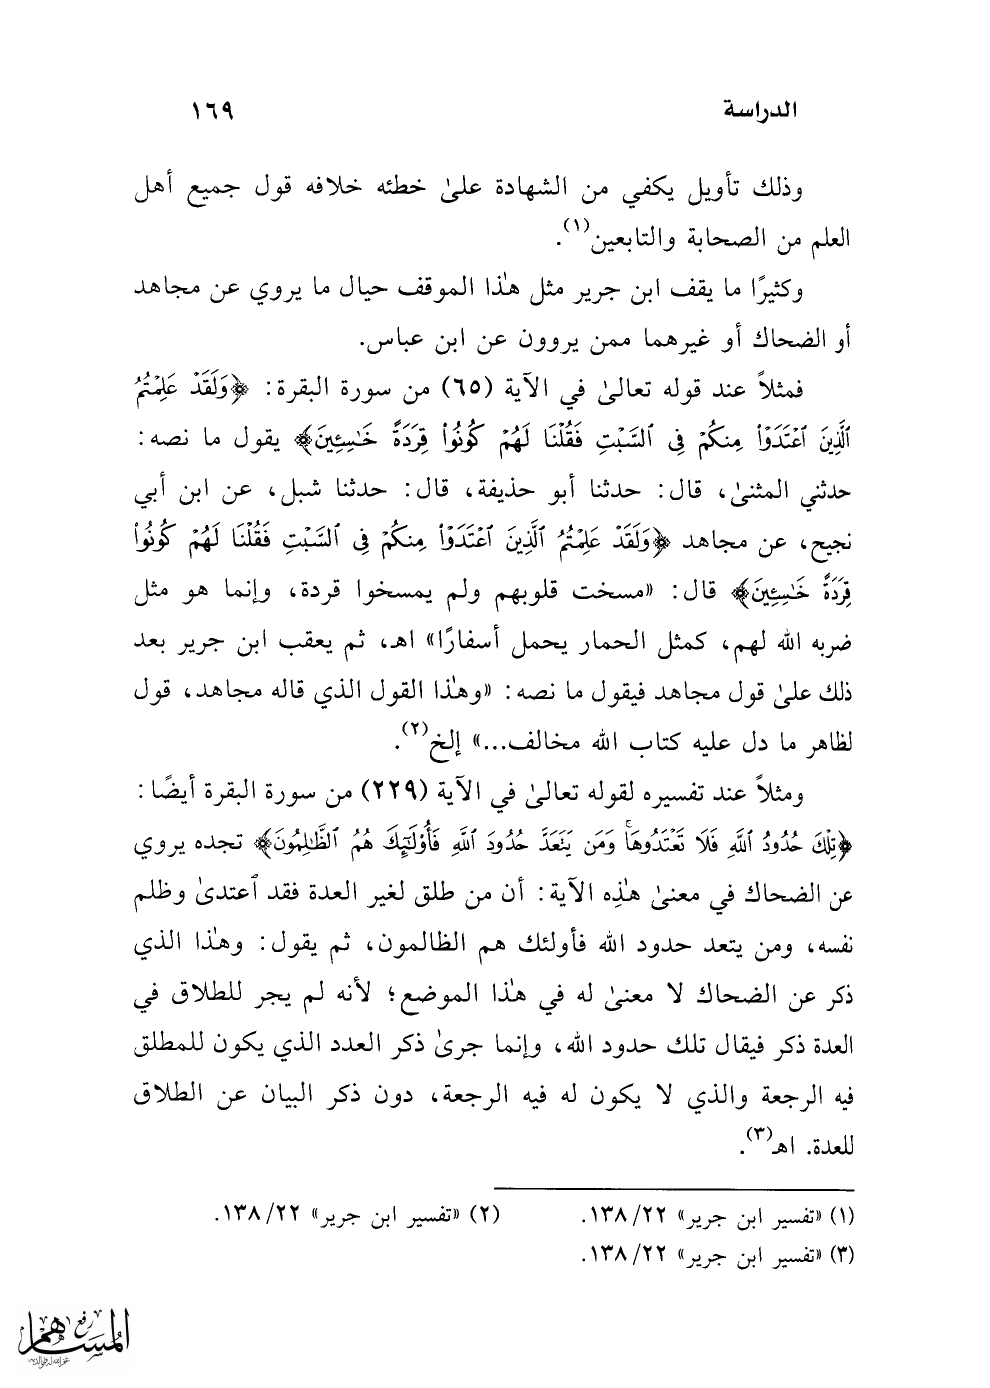 الدراسة ١٦٩
وذلك تأويل يكفي من الشهادة علىٰ خطئه خلافه قول جميع أهل
العلم من الصحابة والتابعين(١).
وكثيرًا ما يقف ابن جرير مثل هٰذا الموقف حيال ما يروي عن مجاهد
أو الضحاك أو غيرهما ممن يروون عن ابن عباس.
فمثلاً عند قوله تعالىٰ في الآية (٦٥) من سورة البقرة: ﴿وَلَقَدْ عَلِمْتُمُ
ٱلَّذِينَ ٱعْتَدَوْا۟ مِنكُمْ فِى ٱلسَّبْتِ فَقُلْنَا لَهُمْ كُونُوا۟ قِرَدَةً خَٰسِـِٔينَ﴾ يقول ما نصه:
حدثني المثنىٰ، قال: حدثنا أبو حذيفة، قال: حدثنا شبل، عن ابن أبي
نجيح، عن مجاهد ﴿وَلَقَدْ عَلِمْتُمُ ٱلَّذِينَ ٱعْتَدَوْا۟ مِنكُمْ فِى ٱلسَّبْتِ فَقُلْنَا لَهُمْ كُونُوا۟
قِرَدَةً خَٰسِـِٔينَ﴾ قال: «مسخت قلوبهم ولم يمسخوا قردة، وإنما هو مثل
ضربه الله لهم، كمثل الحمار يحمل أسفارًا» اهـ، ثم يعقب ابن جرير بعد
ذلك علىٰ قول مجاهد فيقول ما نصه: «وهٰذا القول الذي قاله مجاهد، قول
لظاهر ما دل عليه كتاب الله مخالف...» إلخ(٢).
ومثلاً عند تفسيره لقوله تعالىٰ في الآية (٢٢٩) من سورة البقرة أيضًا:
﴿تِلْكَ حُدُودُ ٱللَّهِ فَلَا تَعْتَدُوهَاۚ وَمَن يَتَعَدَّ حُدُودَ ٱللَّهِ فَأُو۟لَٰٓئِكَ هُمُ ٱلظَّٰلِمُونَ﴾ تجده يروي
عن الضحاك في معنىٰ هٰذِه الآية: أن من طلق لغير العدة فقد ٱعتدىٰ وظلم
نفسه، ومن يتعد حدود الله فأولئك هم الظالمون، ثم يقول: وهٰذا الذي
ذكر عن الضحاك لا معنىٰ له في هٰذا الموضع؛ لأنه لم يجر للطلاق في
العدة ذكر فيقال تلك حدود الله، وإنما جرىٰ ذكر العدد الذي يكون للمطلق
فيه الرجعة والذي لا يكون له فيه الرجعة، دون ذكر البيان عن الطلاق
للعدة. اهـ(٣).
(١) «تفسير ابن جرير» ٢٢/ ١٣٨. (٢) «تفسير ابن جرير» ٢٢/ ١٣٨.
(٣) «تفسير ابن جرير» ٢٢/ ١٣٨.